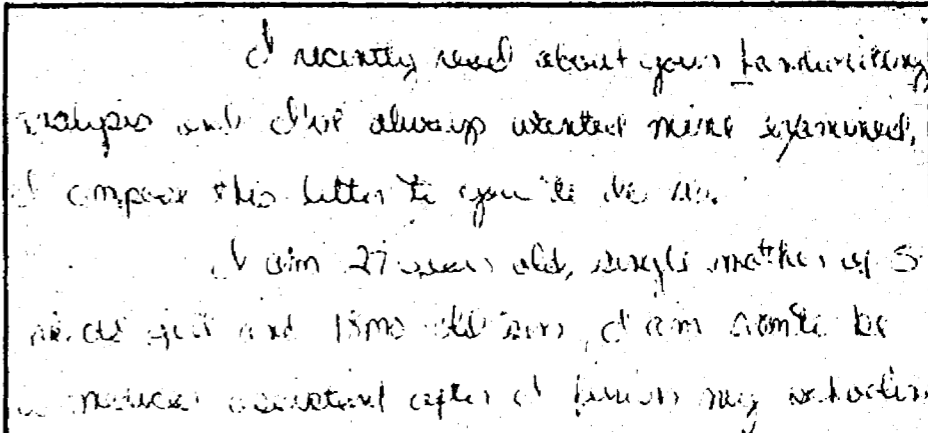 I recently read about your handwriting
analysis and I've always wanted mine examined,
I compose this letter to you to do so.
I am 27 years old, single mother of 5
girl and 18mo old son, I am to be
a medical assistant after I finish my